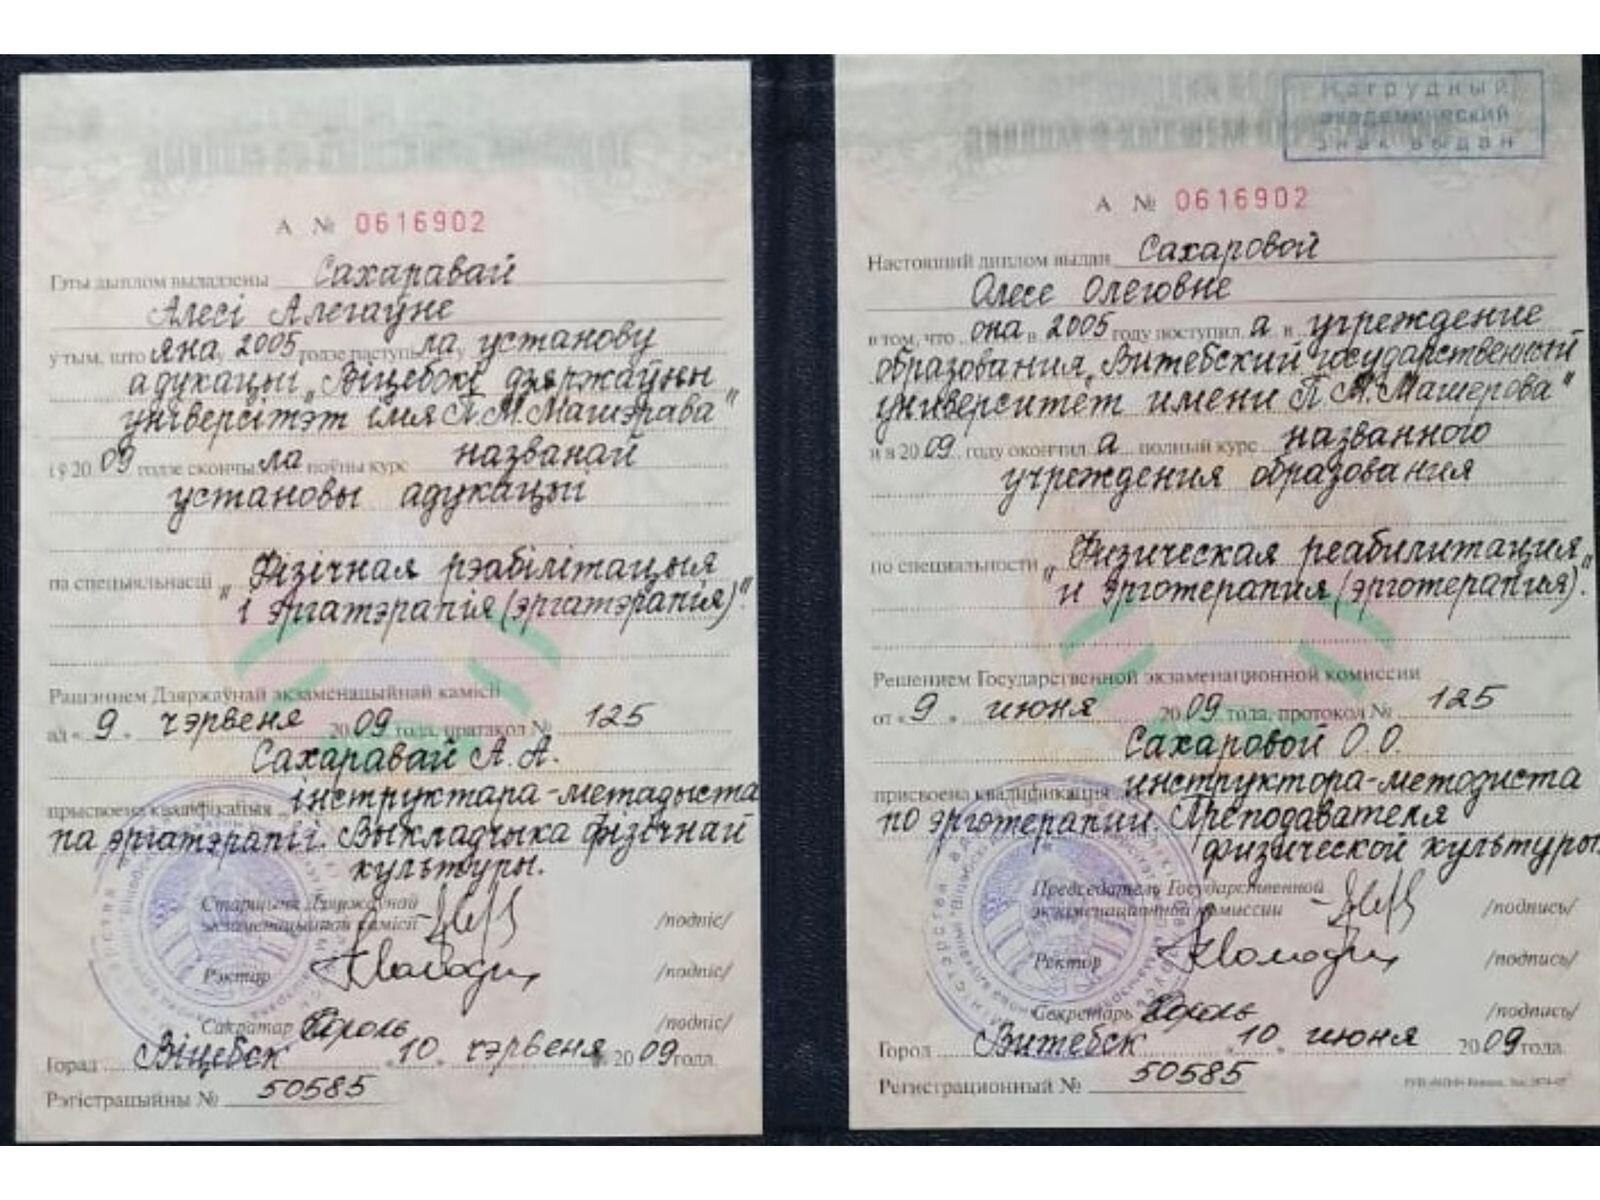 А № 0616902
Гэты дыплом выдадзены Сахаравай
Алесі Алегаўне
у тым, што яна ў 2005 годзе паступіла ў установу
адукацыі "Віцебскі дзяржаўны
універсітэт імя П.М.Машэрава"
і ў 2009 годзе скончыла поўны курс названай
установы адукацыі
па спецыяльнасці "Фізічная рэабілітацыя
і эргатэрапія (эргатэрапія)".
Рашэннем Дзяржаўнай экзаменацыйнай камісіі
ад «9» чэрвеня 2009 года, пратакол № 125
Сахаравай А.А.
прысвоена кваліфікацыя інструктара-метадыста
па эргатэрапіі. Выкладчыка фізічнай
культуры.
Старшыня Дзяржаўнай
экзаменацыйнай камісіі /подпіс/
Рэктар /подпіс/
Сакратар /подпіс/
Горад Віцебск «10» чэрвеня 2009 года.
Рэгістрацыйны № 50585
Нагрудный
академический
знак выдан
А № 0616902
Настоящий диплом выдан Сахаровой
Олесе Олеговне
в том, что она в 2005 году поступила в учреждение
образования "Витебский государственный
университет имени П.М.Машерова"
и в 2009 году окончила полный курс названного
учреждения образования
по специальности "Физическая реабилитация
и эрготерапия (эрготерапия)".
Решением Государственной экзаменационной комиссии
от «9» июня 2009 года, протокол № 125
Сахаровой О.О.
присвоена квалификация инструктора-методиста
по эрготерапии. Преподавателя
физической культуры.
Председатель Государственной
экзаменационной комиссии /подпись/
Ректор /подпись/
Секретарь /подпись/
Город Витебск «10» июня 2009 года.
Регистрационный № 50585